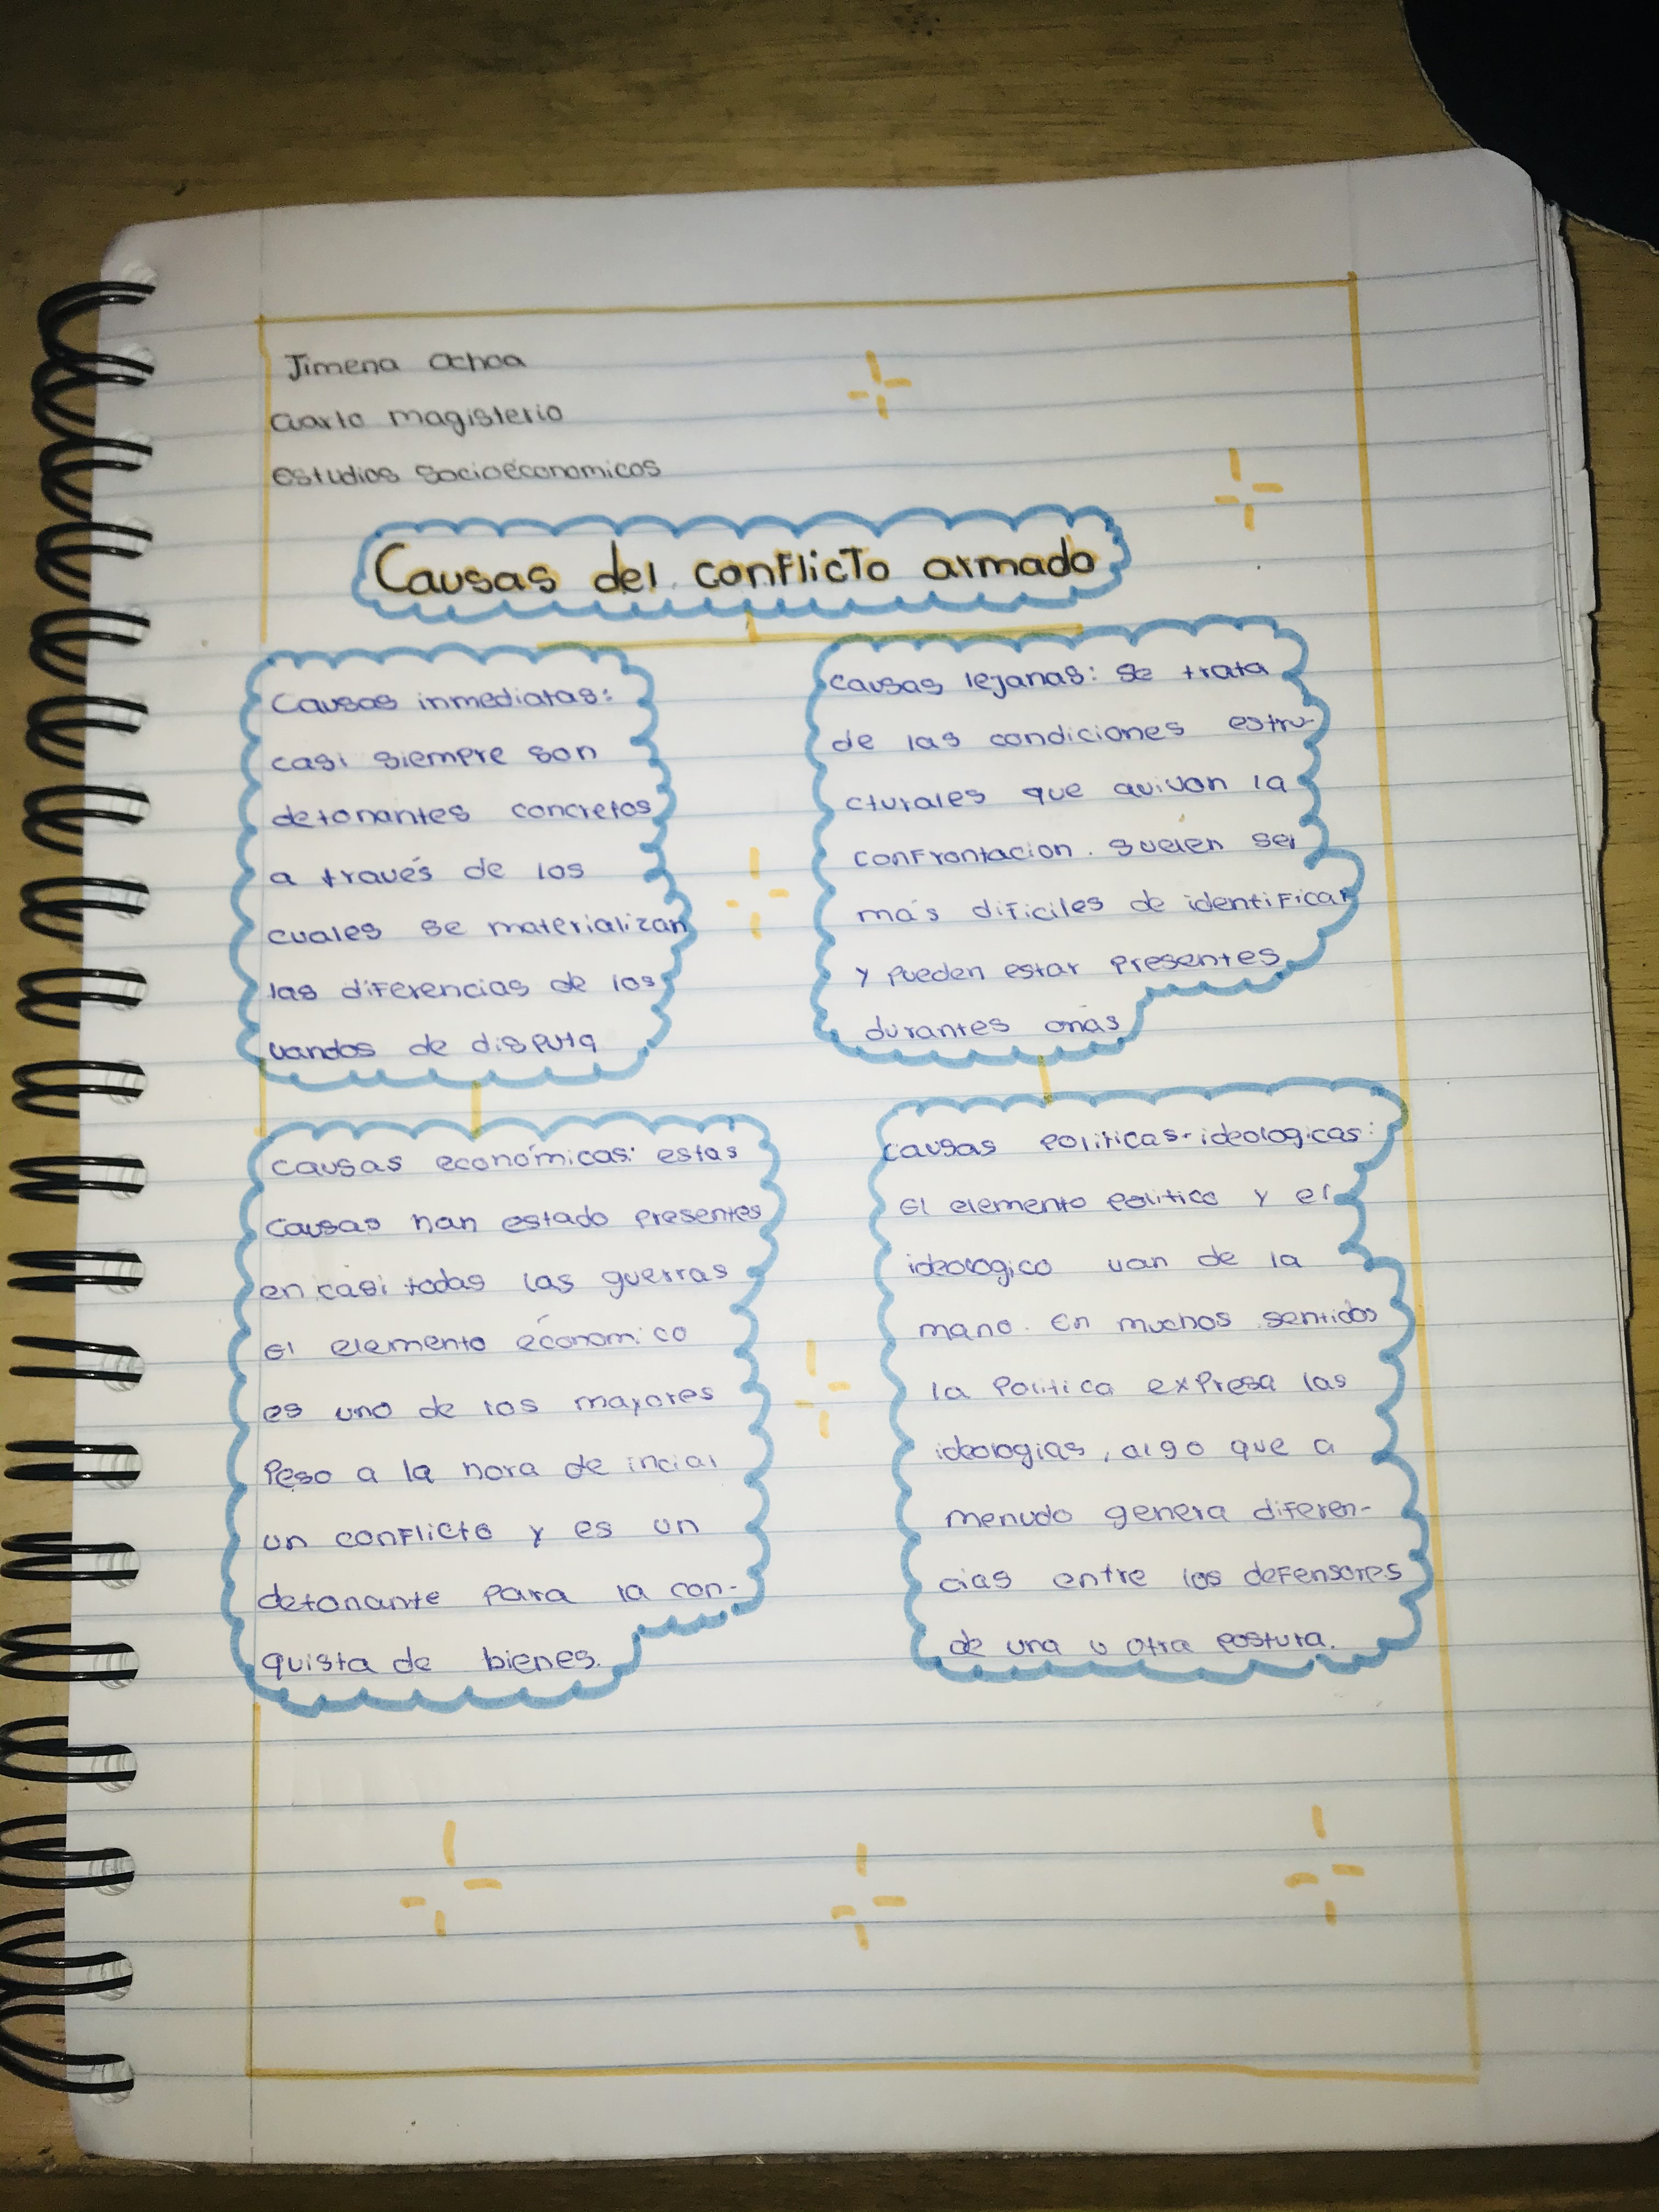 Jimena Ochoa
Cuarto magisterio
estudios socioéconomicos
Causas del conflicto armado
Causas inmediatas:
casi siempre son
detonantes concretos
a través de los
cuales se materializan
las diferencias de los
vandos de disputa
causas lejanas: se trata
de las condiciones estru-
cturales que avivan la
confrontacion. suelen ser
más dificiles de identificar
y pueden estar presentes
durantes onas
causas económicas: estas
causas han estado presentes
en casi todas las guerras
el elemento économico
es uno de los mayores
Peso a la hora de incial
un conflicto y es un
detonante para la con-
quista de bienes.
causas politicas-ideologicas:
el elemento politico y el
ideologico van de la
mano. En muchos sentidos
la politica expresa las
ideologias, algo que a
menudo genera diferen-
cias entre los defensores
de una u otra postura.